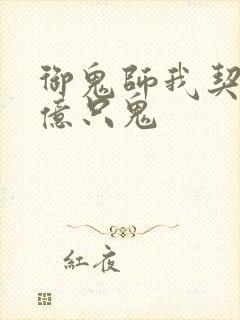 御鬼師我契
億只鬼
紅夜